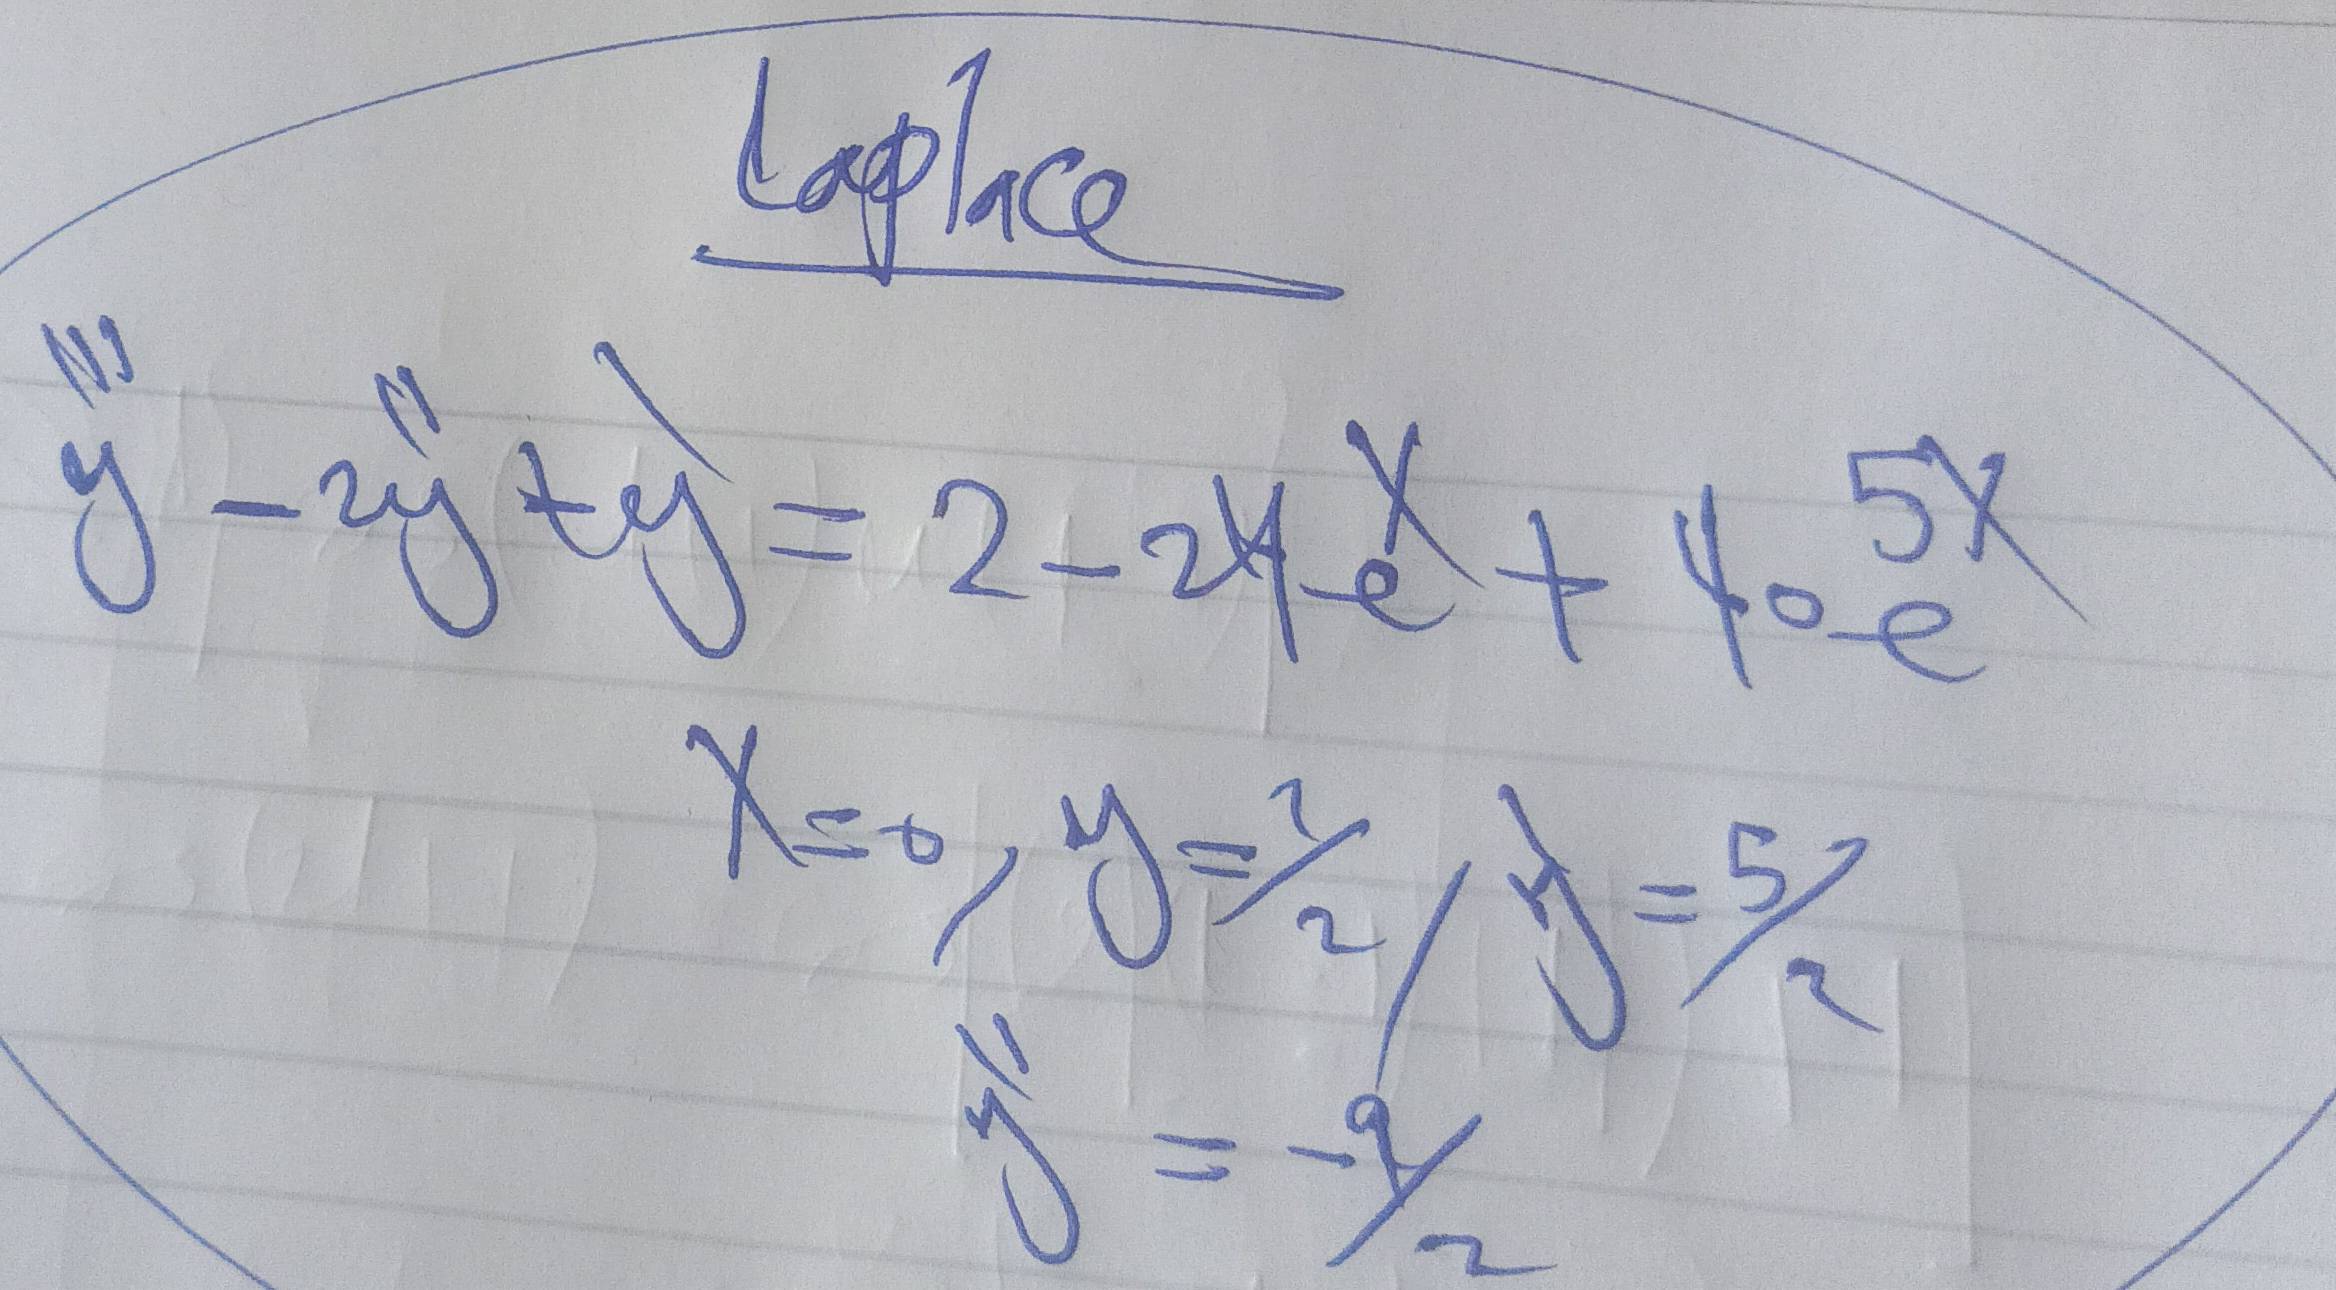 Laplace
y''' - 2y'' + y' = 2 - 24e^x + 40e^5x
x=0, y=1/2, y'=5/2
y'' = -9/2